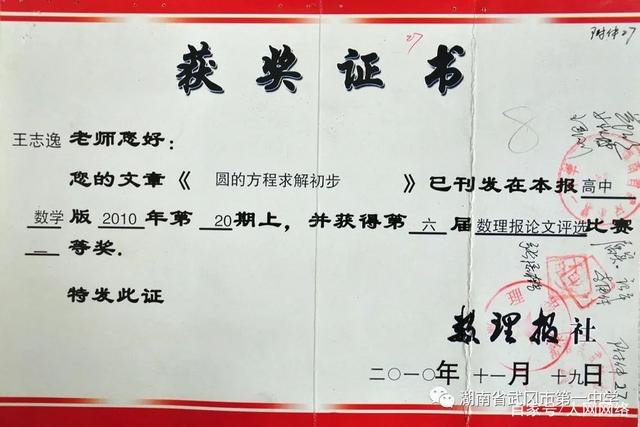 附件27
27
获奖证书
8
王志逸 老师您好:
您的文章《 圆的方程求解初步 》已刊发在本报 高中
数学 版 2010 年第 20 期上，并获得第 六 届 数理报论文评选 比赛
二 等奖.
特发此证
数理报社
二〇一〇年 十一月 十九日
附件27
湖南省武冈市第一中学
百家号/大网网络